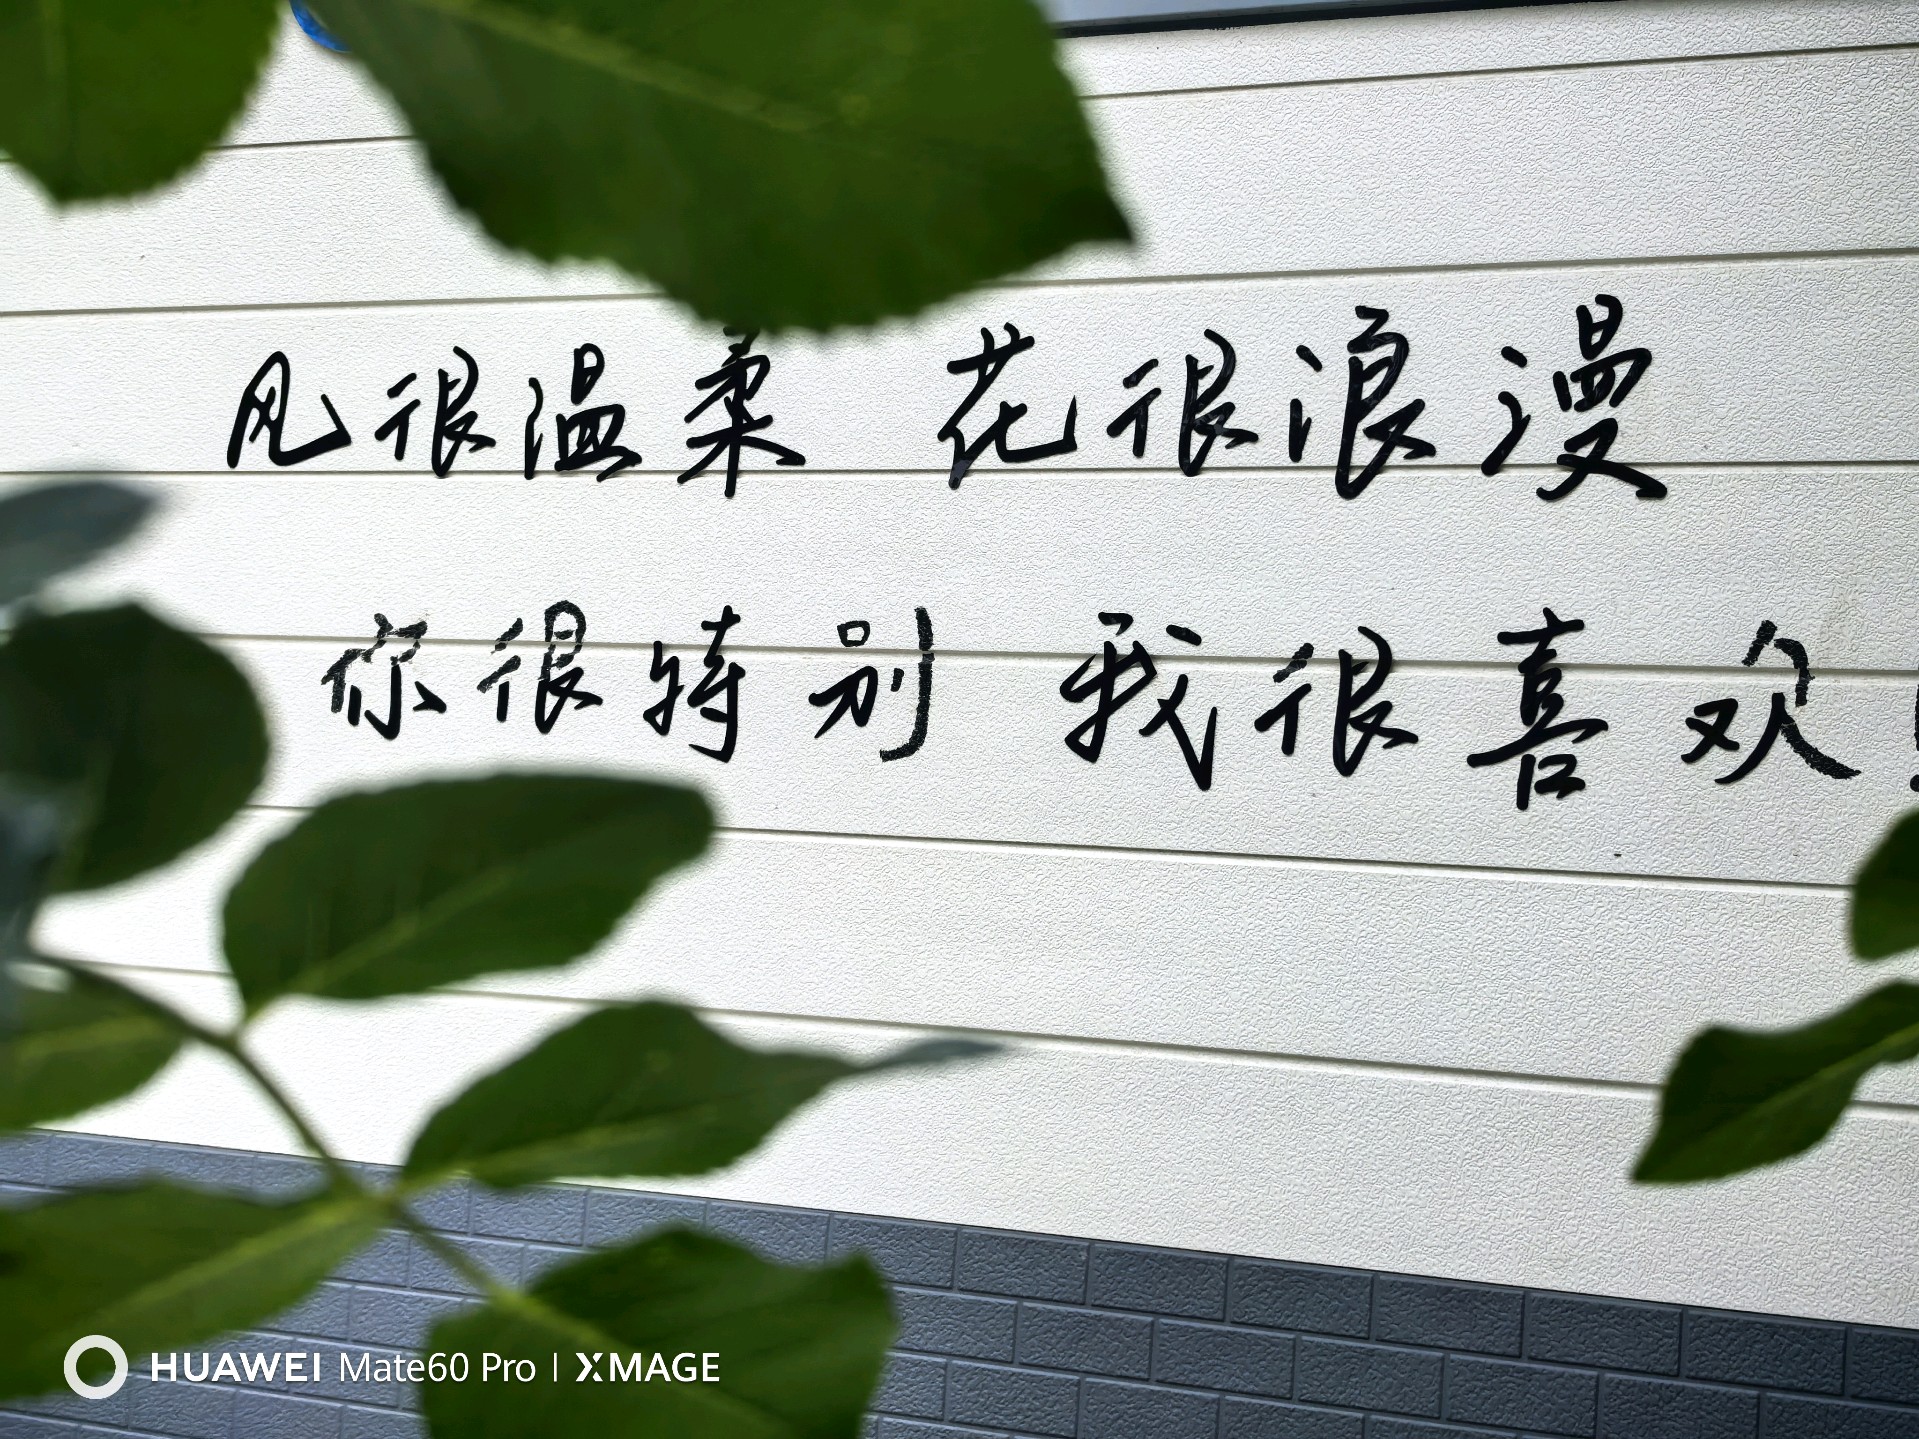 风很温柔 花很浪漫
你很特别 我很喜欢!
HUAWEI Mate60 Pro | XMAGE